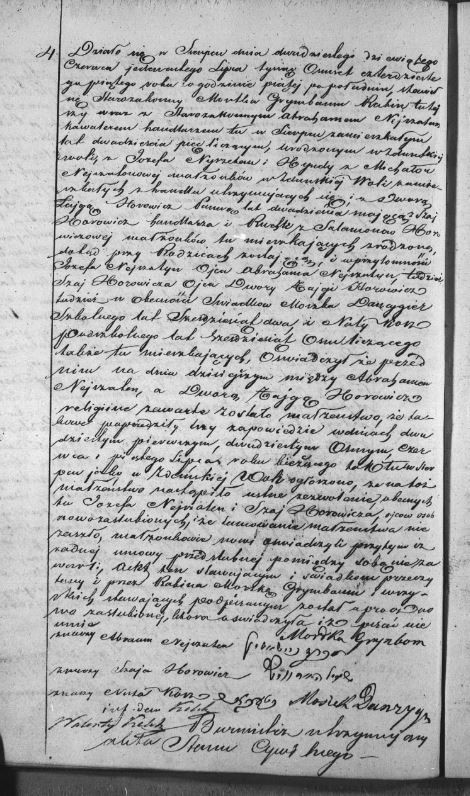 4 Działo się w Sierpcu dnia dwudziestego dziewiątego
Czerwca jedenastego Lipca tysiąc Ośmset czterdzieste
go piątego roku o godzinie piątej po południu, stawił
się Starozakonny Moszka Grynbaum Rabin tutej
szy wraz z Starozakonnym Abrahamem Nejsztaten
kawalerem handlarzem tu w Sierpcu zamieszkałym
lat dwadzieścia pięć liczącym, urodzonym w Zduńskiej
woli, z Józefa i Hyndy z Michałów
Nejsztatenowej małżonków w Zduńskiej Woli zamie
szkałych z handlu utrzymujących się i z Dworą
Łają Horowicz Panną lat dwadzieścia mającą Szaj
Horowicz handlarza i z Salamonów Hor
wiczowej małżonków tu mieszkających zrodzoną,
dotąd przy Rodzicach zostającą, w przytomności
Józefa Nejsztatyn Ojca Abrahama Nejsztatyn tudzież
Szaj Horowicza Ojca Dwory Horowicz
tudzież w obecności Świadków Moszka Danzygier
Szkolnego lat Sześćdziesiąt dwa i Noty Kon
Podszkolnego lat Sześćdziesiąt Ośm liczącego
także tu mieszkających, Oświadczył że przed
nim na dniu dzisiejszym między Abrahamem
Nejsztaten, a Dworą Horowicz
religijne zawarte zostało małżeństwo, że ta
kowe poprzedziły trzy zapowiedzie w dniach dwu
dziestym pierwszym, dwudziestym Ósmym Czer
wca i piątego Lipca roku bieżącego tak tu w Sier
pcu jako w Zduńskiej Woli ogłoszone, że na toż
małżeństwo nastąpiło ustne zezwolenie obecnych
tu Józefa Nejsztaten i Szaj Horowicza, ojców osób
nowozaślubionych, że tamowanie małżeństwa nie
zaszło, małżonkowie nowi oświadczyli przytem iż
żadnej umowy przedślubnej pomiędzy sobą nie za
warli, Akt ten stawającym i świadkom przeczy
tany i przez Rabina Moszka Grynbaum i wszy
stkich stawających podpisanym został oprócz no
wo zaślubionej, która oświadczyła iż pisać nie
umie Moszka Grynbom
znaczy Abraam Nejszaten
znaczy Szaja Horowicz
znaczy Nuta Kon Mosiek Danzygier
Burmistrz utrzymujący
Akta Stanu Cywilnego